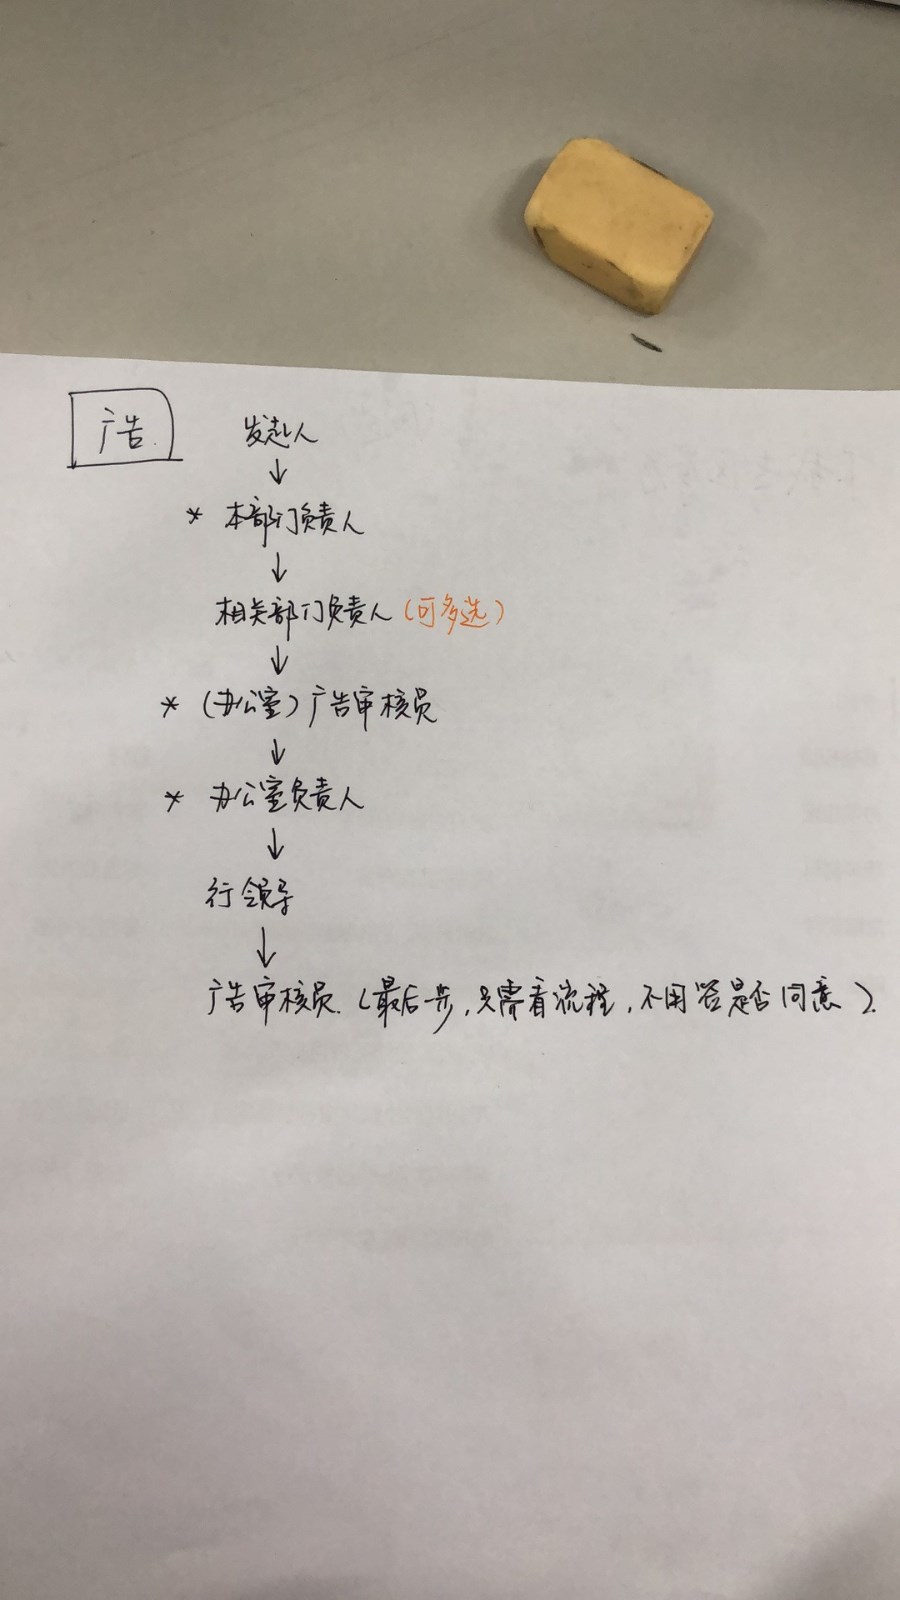 广告.
发起人
↓
* 本部门负责人
↓
相关部门负责人(可多选)
↓
* (办公室)广告审核员
↓
* 办公室负责人
↓
行领导
↓
广告审核员.(最后一步,只需看流程,不用签是否同意).